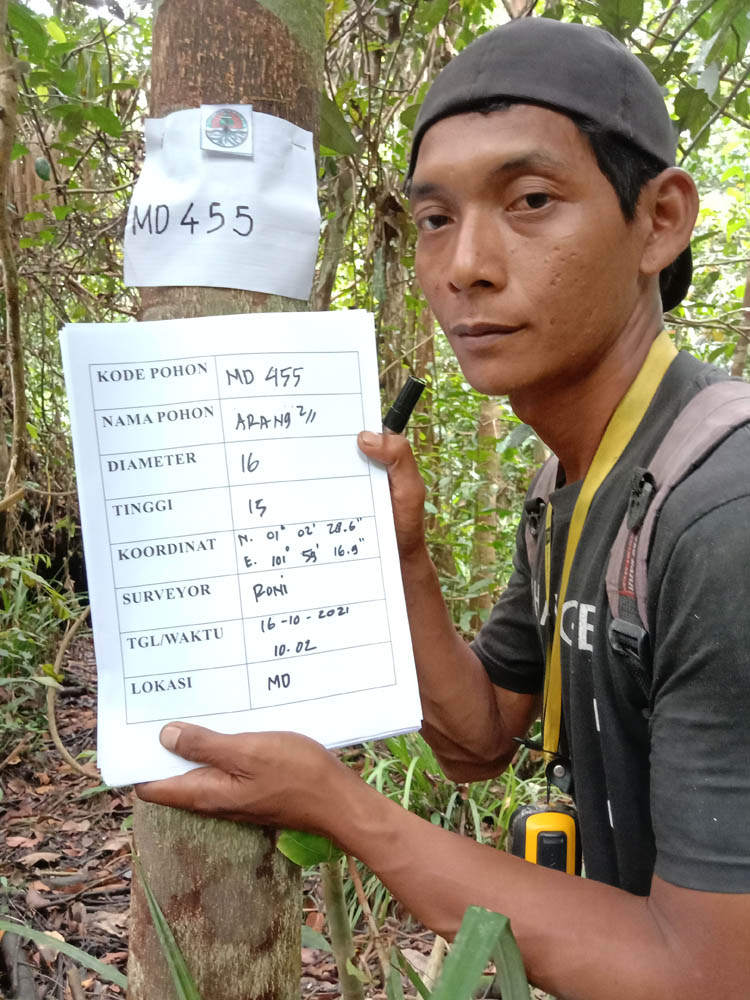 MD 455
KODE POHON MD 455
NAMA POHON ARANG²//
DIAMETER 16
TINGGI 15
KOORDINAT N. 01° 02' 28.6"
E. 101° 59' 16.9"
SURVEYOR RONI
TGL/WAKTU 16-10-2021
10.02
LOKASI MD